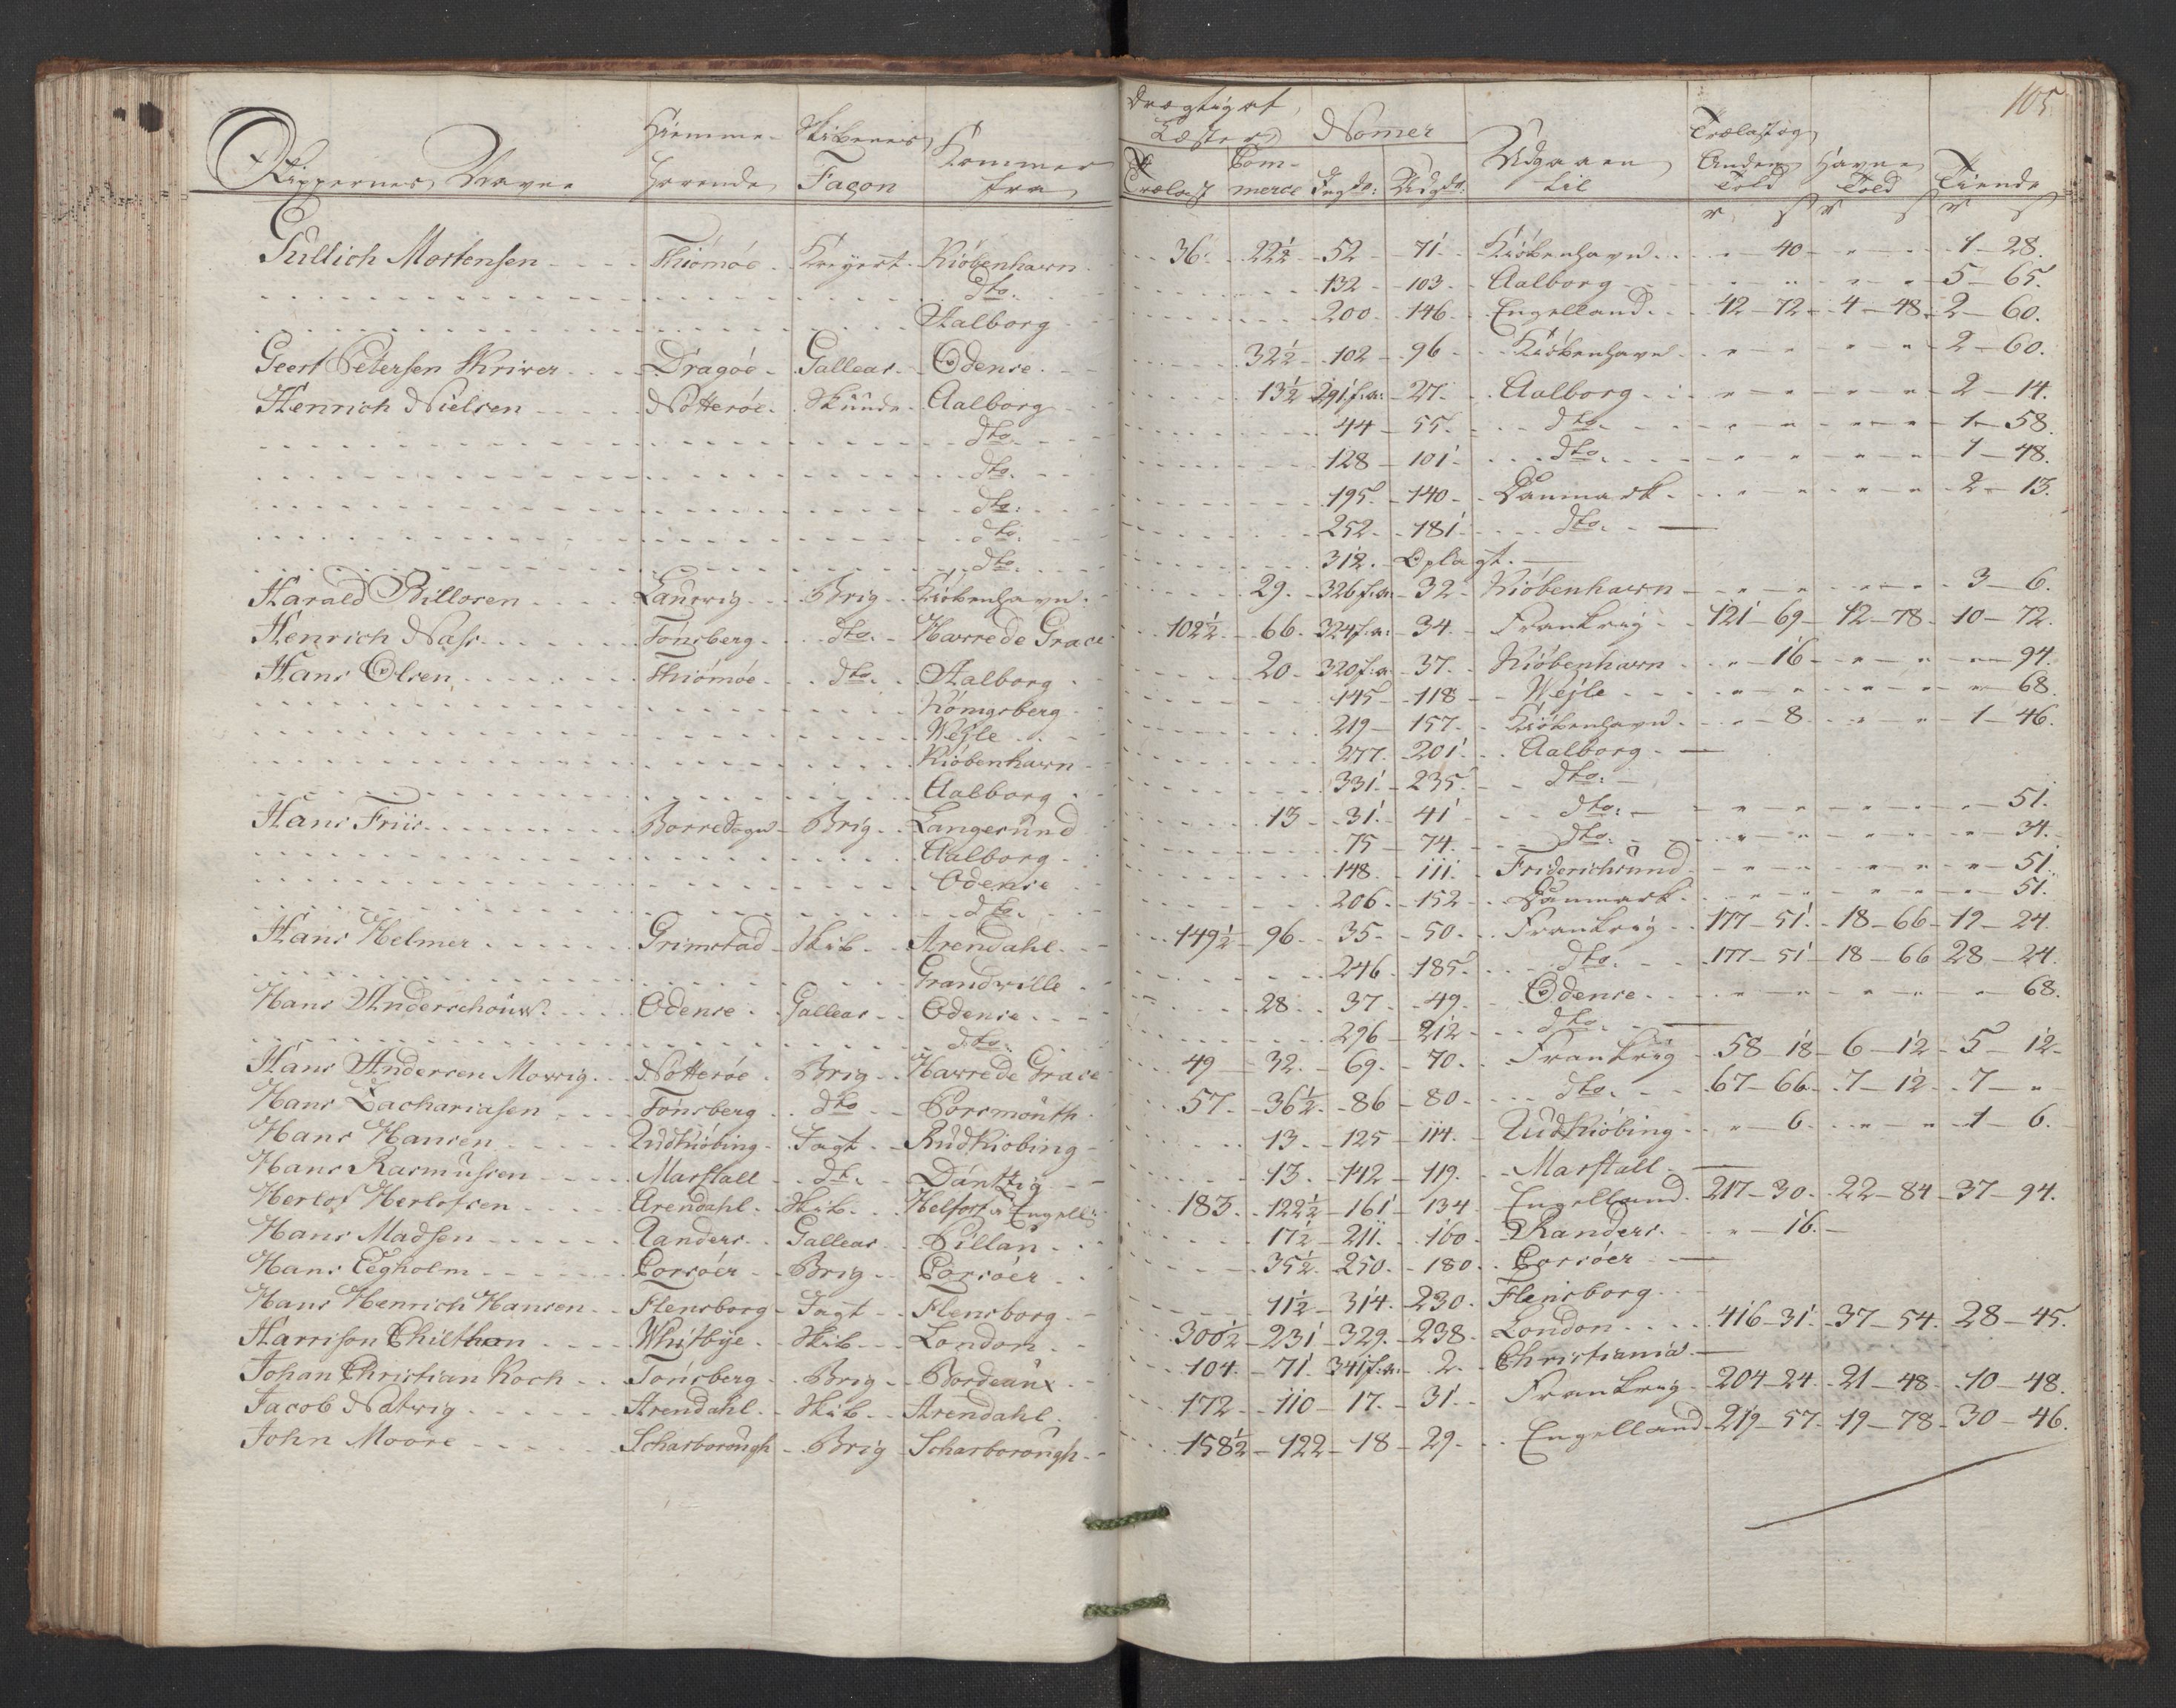 105
Skippernes Navne Hiemme- Hørende Skibenes Façon Kommer fra Drægtighet Læster Trælast Commerce Nomer Indg do: Udg do: Udgaaen til Trælast og Anden Told Havne Told Tiende
r s r s r s
Gullich Mortensen Thiömöe Kreyert Kiöbenhavn 36. 22½ 52 71 Kiöbenhavn " 40 " " 1 28.
dto. 132 103 Aalborg " " " " 5 65.
Aalborg 200 146 Engelland 42 72 4 48 2 60.
Geert Petersen Skriver Dragöe Galleas Odense 32½ 102 96 Kiöbenhavn " " " " 2 60.
Henrich Nielsen Nötteröe Skünde Aalborg 13½ 291 f.a: 27 Aalborg " " " " 2 14.
dto. 44 55 dto. " " " " 1 58.
dto. 128 101 dto. " " " " 1 48.
dto: 195 140 Danmark " " " " 2 13.
dto. 252 181 dto.
dto. 312. Oplagt.
Harald Billosen Laurvig Brig Kiöbenhavn 29. 326 f.a: 32 Kiöbenhavn " " " " 3 6.
Henrich Nass Tonsberg dto. Havre de Grace 102½ 66. 324 f.a: 34. Frankrig 121 69 12 78 10 72.
Hans Olsen Thiömöe dto. Aalborg 20 320 f.a: 37. Kiöbenhavn " 16 " " " 94.
Königsberg 145 118 Wejle " " " " " 68.
Wejle 219 157 Kiöbenhavn " 8 " " 1 46.
Kiöbenhavn 277. 201 Aalborg
Aalborg 331 235 dto.
Hans Friis Borre Sogn Brig Langesund 13 31 41 dto: " " " " " 51.
Aalborg 75 74. dto. " " " " " 34.
Odense 148 111. Friderichsund " " " " " 51.
dto. 206. 152 Danmark " " " " " 51.
Hans Helmer Grimstad Skib Arendahl 149½ 96 35 50 Frankrig 177 51 18 66 12 24.
Grandville 246 185 dto. 177 51 18 66 28 24.
Hans Anderschouw Odense Galleas Odense 28. 37 49. Odense " " " " " 68.
dto. 296 212 dto.
Hans Andersen Mowig Nötteröe Brig Havre de Grace 49 32. 69. 70. Frankrig 58 18 6 12 5 12
Hans Zachariasen Tonsberg dto Porsmouth 57. 36½ 86 80. dto. 67 66 7 12 7 "
Hans Hansen Rudkiöbing Jagt Rudkiobing 13. 125 114. Rudkiöbing " 6 " " 1 6.
Hans Rasmussen Marstall dt. Dantzig 13. 142 119. Marstall
Herlof Herlofsen Arendahl Skib Helfort i Engell: 183. 122½ 161 134 Engelland 217 30 22 84 37 94.
Hans Madsen Randers Galleas Pillau 17½ 211. 160 Randers " 16.
Hans Eegholm Corsöer Brig Corsöer 35½ 250. 180 Corsöer
Hans Henrich Hansen Flensborg Jagt Flensborg 11½ 314. 230. Flensborg
Harrison Chilthon Whitbye Skib London 300½ 231 329. 238 London 416 31 37 54 28 45.
Johan Christian Koch Tonsberg Brig Bordeaux 104. 71 341 f.a: 2. Christiania
Jacob Natvig Arendahl Skib Arendahl 172 110 17. 31 Frankrig 204 24 21 48 10 48.
John Moore Scharborough Brig Scharborough 158½ 122 18 29. Engelland 219 57 19 78 30 46.